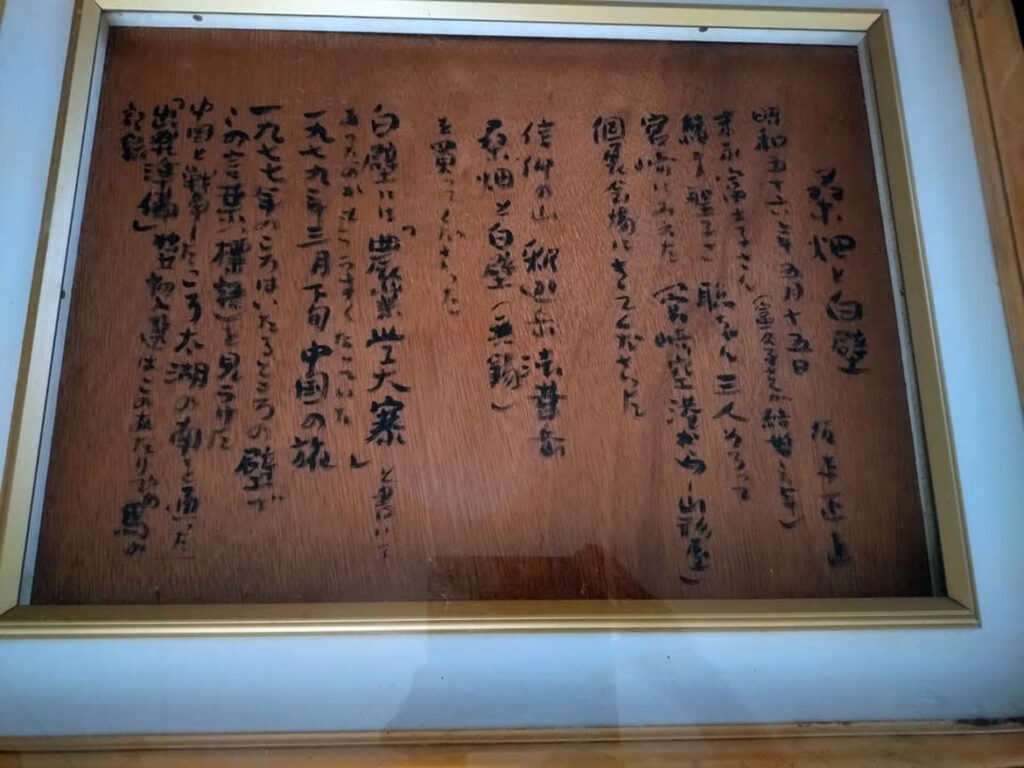 桑畑と白壁 坂上正直
昭和五十六年五月十五日
末永富士子さん
純子 聖子さん 聡ちゃん 三人そろって
宮崎にみえた (宮崎空港から山形屋)
個展会場にきてくださった
信仰の山 釈迦
桑畑と白壁(無錫)
を買ってくださった
白壁には「農業学大寨」と書いて
あったのがもううすくなっていた
一九七九年三月下旬 中国の旅
一九七七年のころはいたるところの壁で
この言葉(標語)を見うけた
中国と戦争したころ太湖の南を通った
「出発準備」 はこのあたりでの馬の
記録